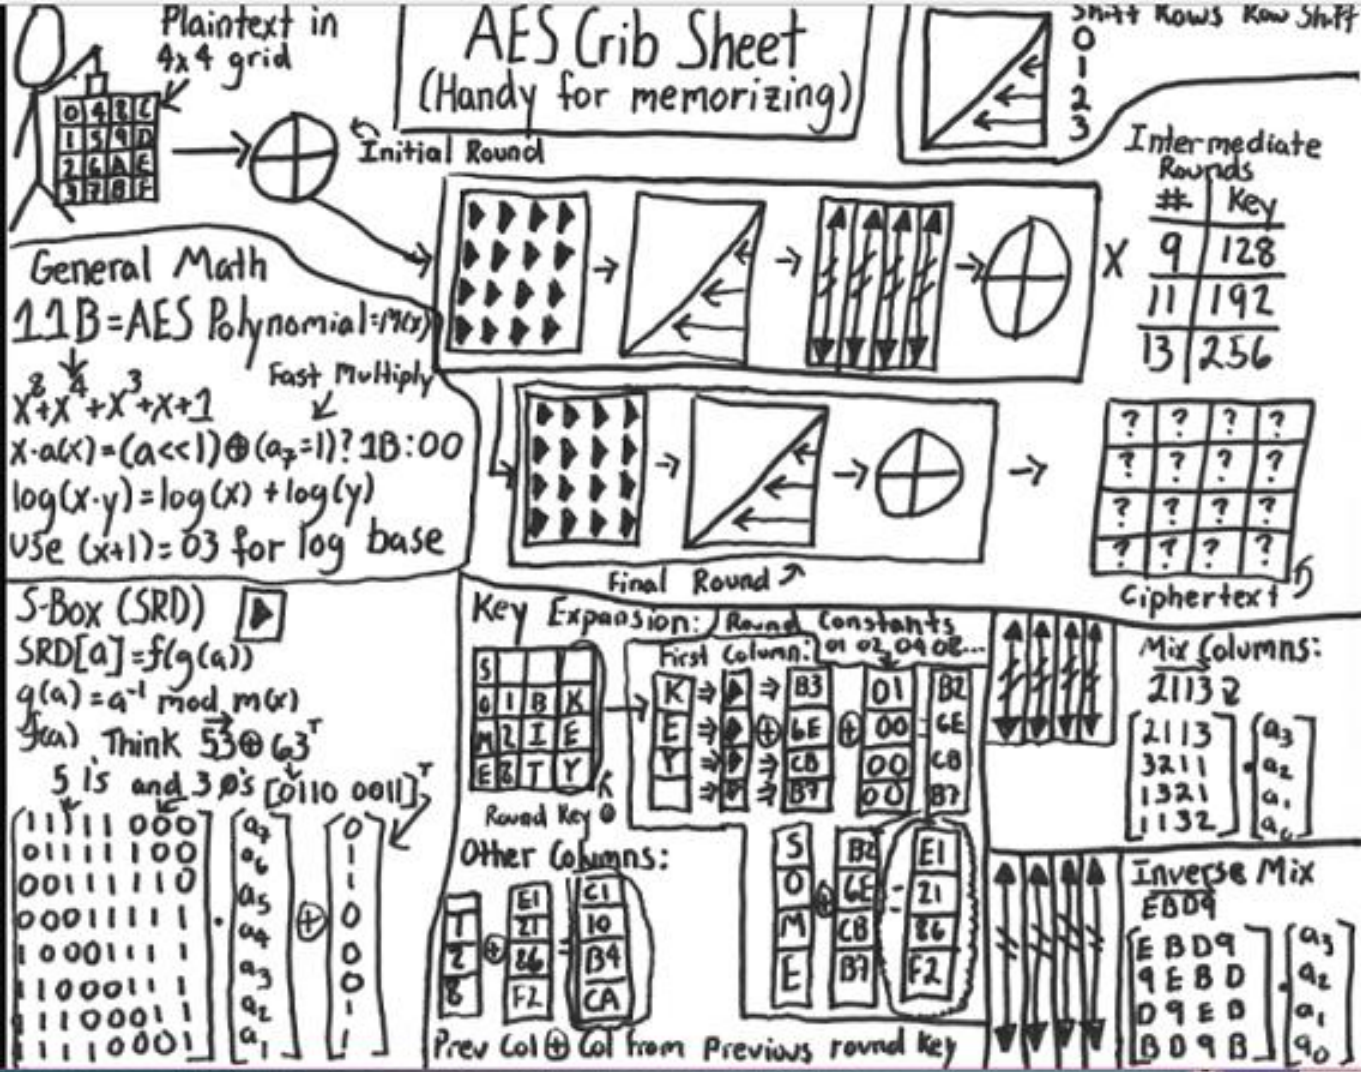 Plaintext in
4x4 grid
0 4 8 C
1 5 9 D
2 6 A E
3 7 B F
AES Crib Sheet
(Handy for memorizing)
Shift Rows Row Shift
0
1
2
3
Initial Round
Intermediate
Rounds
# Key
9 128
11 192
13 256
X
General Math
11B=AES Polynomial=M(x)
Fast Multiply
x⁸+x⁴+x³+x+1
x·a(x)=(a<<1)⊕(a₇=1)?1B:00
log(x·y)=log(x)+log(y)
use (x+1)=03 for log base
Final Round
? ? ? ?
? ? ? ?
? ? ? ?
? ? ? ?
Ciphertext
S-Box (SRD)
SRD[a]=f(g(a))
g(a)=a⁻¹ mod m(x)
f(a) Think 53⊕63ᵀ
5 1's and 3 0's [0110 0011]ᵀ
1 1 1 1 1 0 0 0 a₇ 0
0 1 1 1 1 1 0 0 a₆ 1
0 0 1 1 1 1 1 0 a₅ 1
0 0 0 1 1 1 1 1 · a₄ ⊕ 0
1 0 0 0 1 1 1 1 a₃ 0
1 1 0 0 0 1 1 1 a₂ 0
1 1 1 0 0 0 1 1 a₁ 1
1 1 1 1 0 0 0 1 1
Key Expansion:
Round Constants
01 02 04 08...
First Column:
S
O 1 B K
M 2 I E
E 8 T Y
Round Key 0
K B3 01 B2
E ⊕ 6E ⊕ 00 = 6E
Y CB 00 CB
B7 00 B7
S B2 E1
O ⊕ 6E = 21
M CB 86
E B7 F2
Other Columns:
E1 C1
1 21 10
2 ⊕ 86 = B4
8 F2 CA
Prev Col ⊕ Col from previous round key
Mix Columns:
2113
2113 a₃
3211 · a₂
1321 a₁
1132 a₀
Inverse Mix
EBD9
E B D 9 a₃
9 E B D · a₂
D 9 E B a₁
B D 9 B a₀